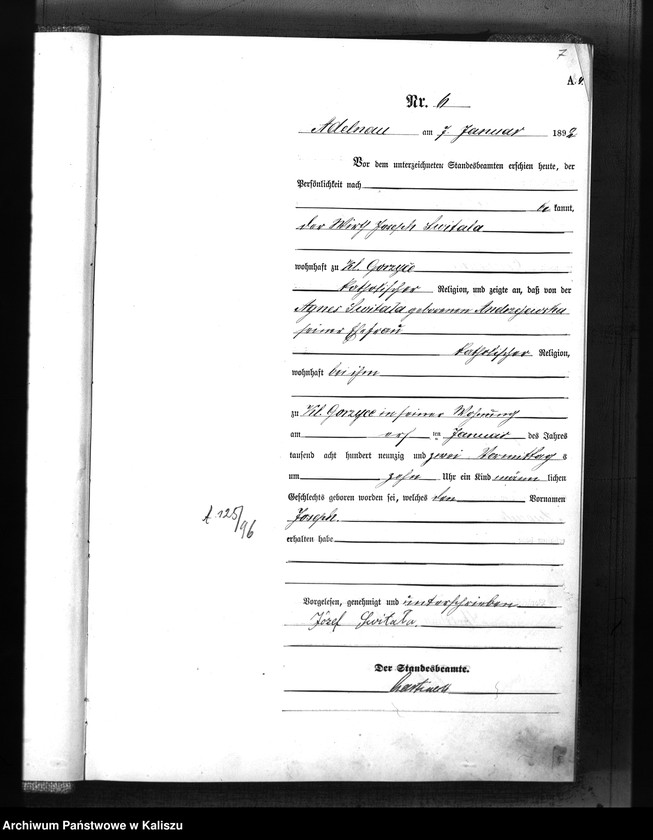 7
A.
Nr. 6
Adelnau am 7. Januar 1892
Vor dem unterzeichneten Standesbeamten erschien heute, der
Persönlichkeit nach
be kannt,
der Wirth Joseph Switala
wohnhaft zu Kl. Gorzyce
katholischer Religion, und zeigte an, daß von der
Agnes Switala geborenen Andrzejewska
seiner Ehefrau
katholischer Religion,
wohnhaft bei ihm
zu Kl. Gorzyce in seiner Wohnung
am ersten Januar des Jahres
tausend acht hundert neunzig und zwei Vormittag s
um zehn Uhr ein Kind männ lichen
Geschlechts geboren worden sei, welches den Vornamen
Joseph
erhalten habe
A 125/96
Vorgelesen, genehmigt und unterschrieben
Józef Switała.
Der Standesbeamte.
Archiwum Państwowe w Kaliszu